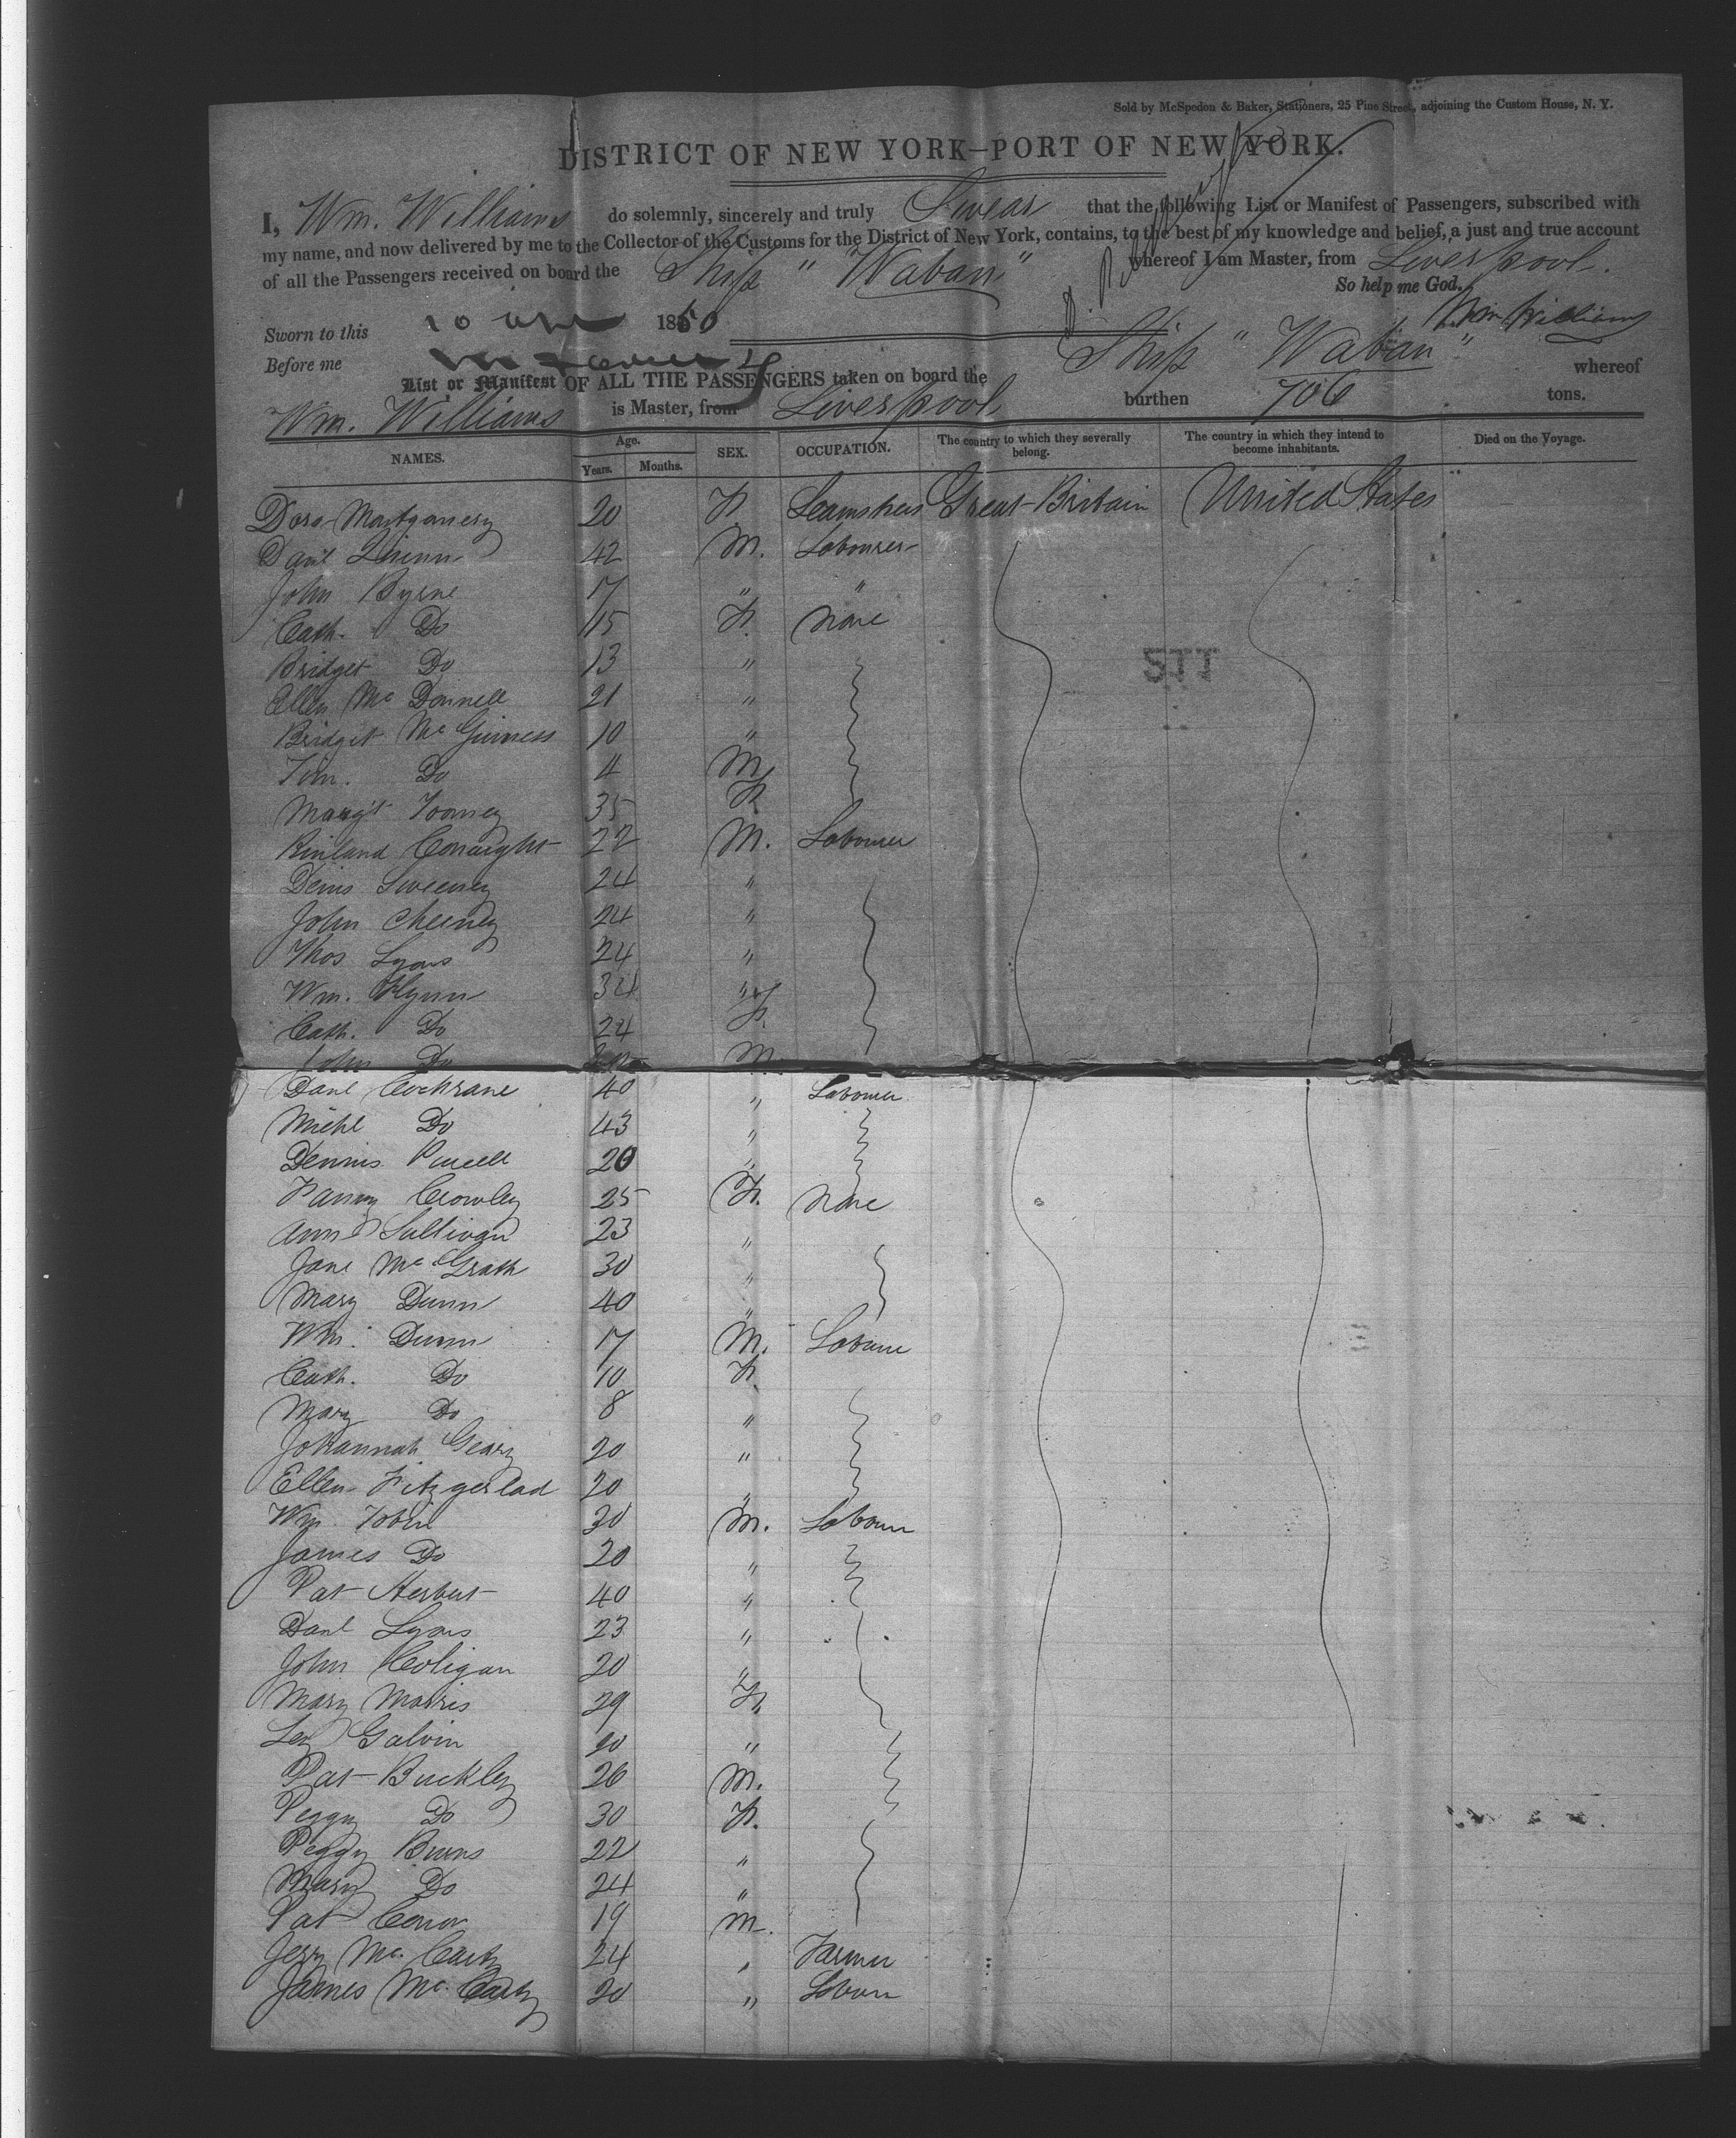 Sold by McSpedon & Baker, Stationers, 25 Pine Street, adjoining the Custom House, N. Y.
DISTRICT OF NEW YORK—PORT OF NEW YORK.
I, Wm. Williams do solemnly, sincerely and truly Swear that the following List or Manifest of Passengers, subscribed with
my name, and now delivered by me to the Collector of the Customs for the District of New York, contains, to the best of my knowledge and belief, a just and true account
of all the Passengers received on board the Ship "Waban" whereof I am Master, from Liverpool.
So help me God.
Wm Williams
Sworn to this 10 1850
Before me
List or Manifest OF ALL THE PASSENGERS taken on board the Ship "Waban" whereof
Wm. Williams is Master, from Liverpool burthen 706 tons.
NAMES. Age. Years. Months. SEX. OCCUPATION. The country to which they severally belong. The country in which they intend to become inhabitants. Died on the Voyage.
Dora Montgomery 20 F. Seamstress Great Britain United States
Danl Quinn 42 M. Labourer
John Byrne 17 " "
Cath. Do 15 F. None
Bridget Do 13 "
Ellen Mc Donnell 21 "
Bridget Mc Guiness 10 "
Tim. Do 4 M
Margt Toomey 35 F
Conaught 22 M. Labourer
Denis Sweeney 24 "
John Cheeney 24 "
Thos Lyons 24 "
Wm. Flynn 34 "
Cath. Do 24 F.
John Do M
Danl Cochrane 40 " Labourer
Michl Do 43 "
Dennis Purcell 20 "
Fanny Crowley 25 F. None
Ann Sullivan 23 "
Jane McGrath 30 "
Mary Dunn 40 "
Wm. Dunn 17 M. Labourer
Cath. Do 10 F.
Mary Do 8 "
Johannah Geary 20 "
Ellen Fitzgerlad 20 "
Wm. Tobin 30 M. Labour
James Do 20 "
Pat Herbert 40 "
Danl Lyons 23 "
John Coligan 20 "
Mary Morris 29 F.
Galvin 20 "
Pat Buckley 26 M.
Peggy Do 30 F.
Peggy Burns 22 "
Mary Do 24 "
Pat Conor 19 M.
Jerry Mc. Carty 24 " Farmer
James Mc. Carty 20 " Labour